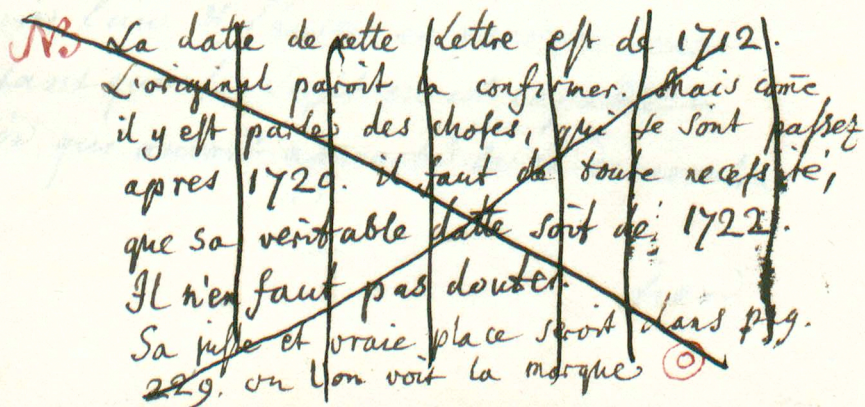 NB La datte de cette Lettre est de 1712.
L'original paroit la confirmer. Mais com̄e
il y est parlé des choses, qui se sont passez
apres 1720. il faut de toute necessité,
que sa veritable datte soit de 1722.
Il n'en faut pas douter.
Sa juste et vraie place seroit dans pag.
229. ou l'on voit la marque